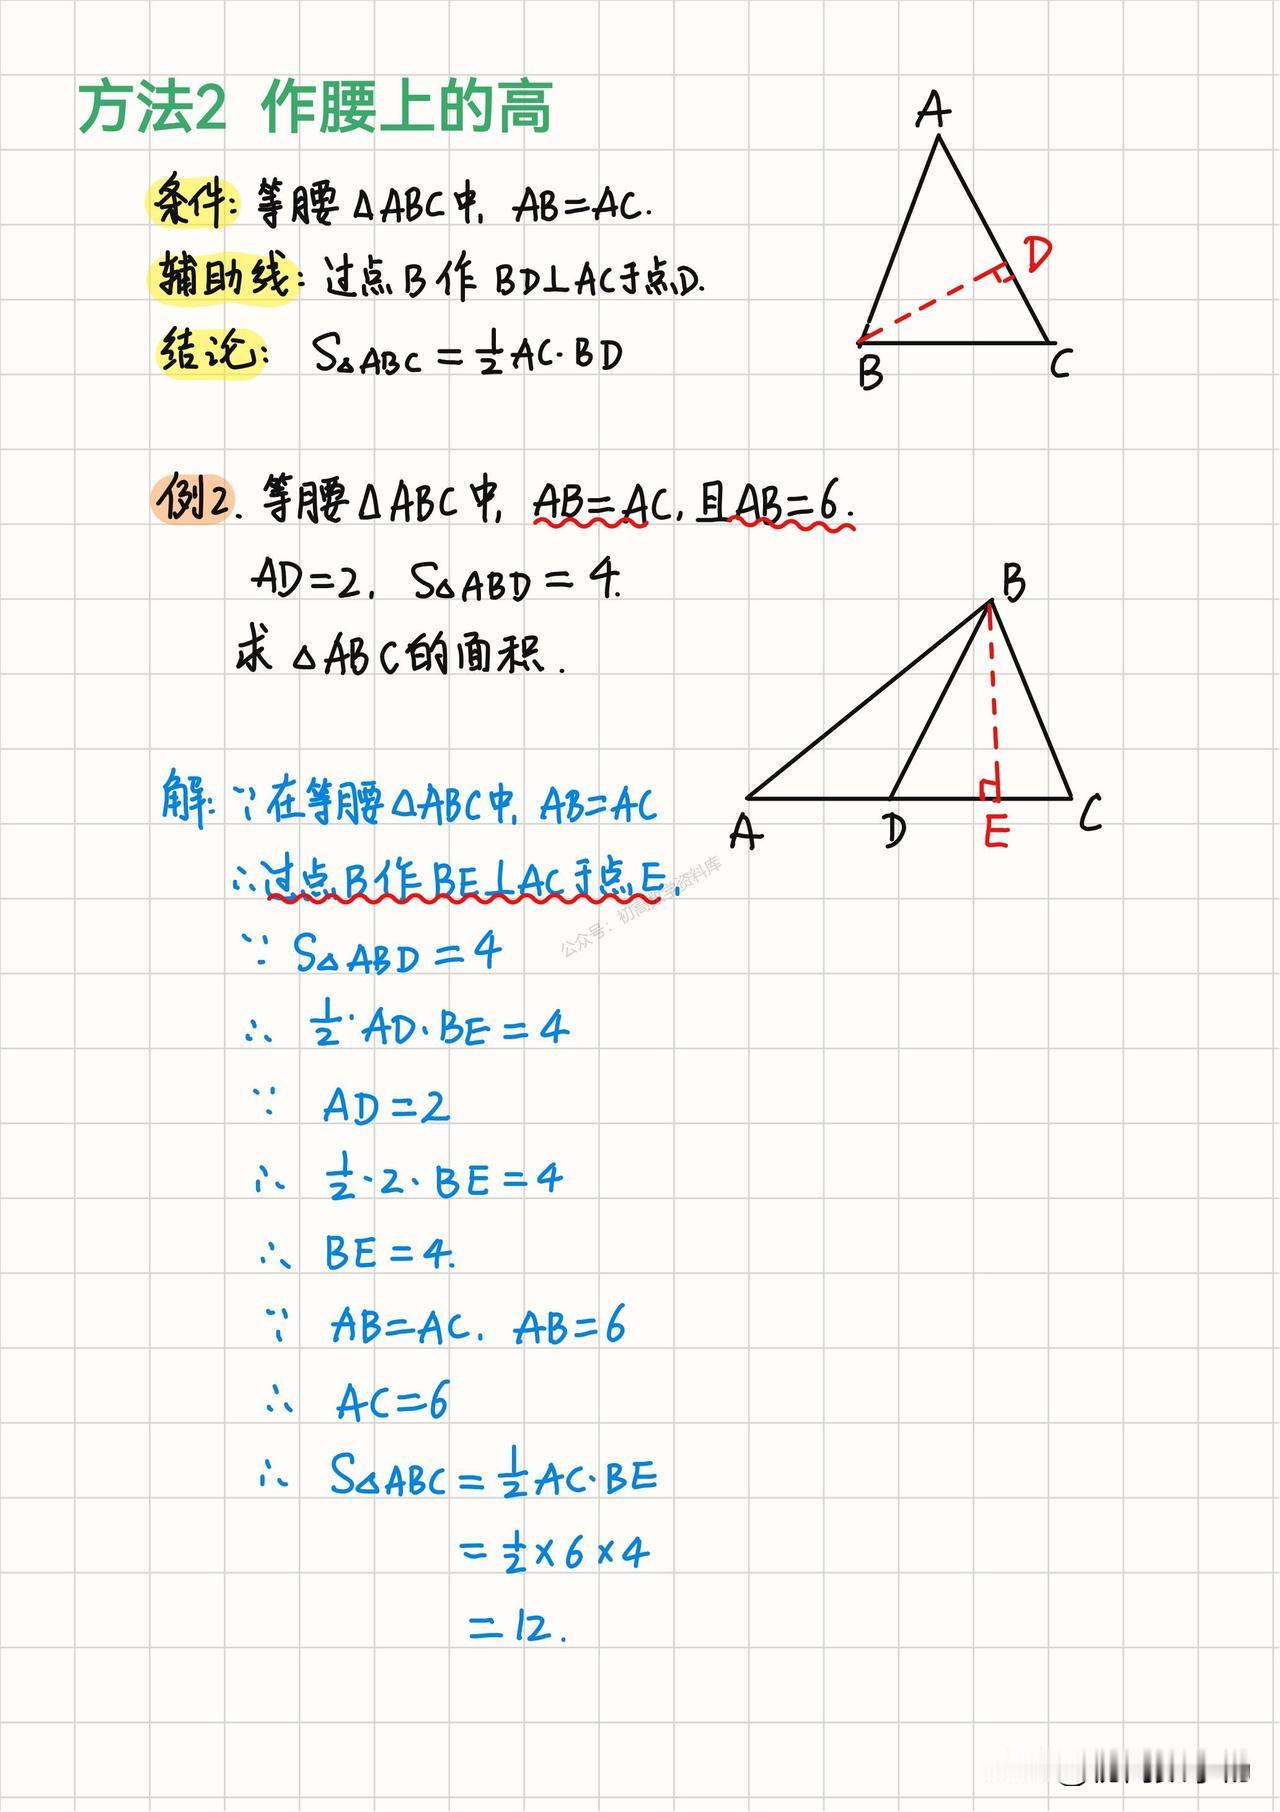 方法2 作腰上的高
条件: 等腰△ABC中, AB=AC.
辅助线: 过点B作 BD⊥AC于点D.
结论: S△ABC = 1/2 AC·BD
A
D
B
C
例2. 等腰△ABC中, AB=AC, 且AB=6.
AD=2, S△ABD = 4.
求 △ABC的面积.
B
A
D
E
C
解: ∵在等腰△ABC中, AB=AC
∴过点B作BE⊥AC于点E,
公众号：初高数学资料库
∵ S△ABD = 4
∴ 1/2·AD·BE = 4
∵ AD=2
∴ 1/2·2·BE=4
∴ BE=4.
∵ AB=AC, AB=6
∴ AC=6
∴ S△ABC = 1/2 AC·BE
= 1/2×6×4
=12.